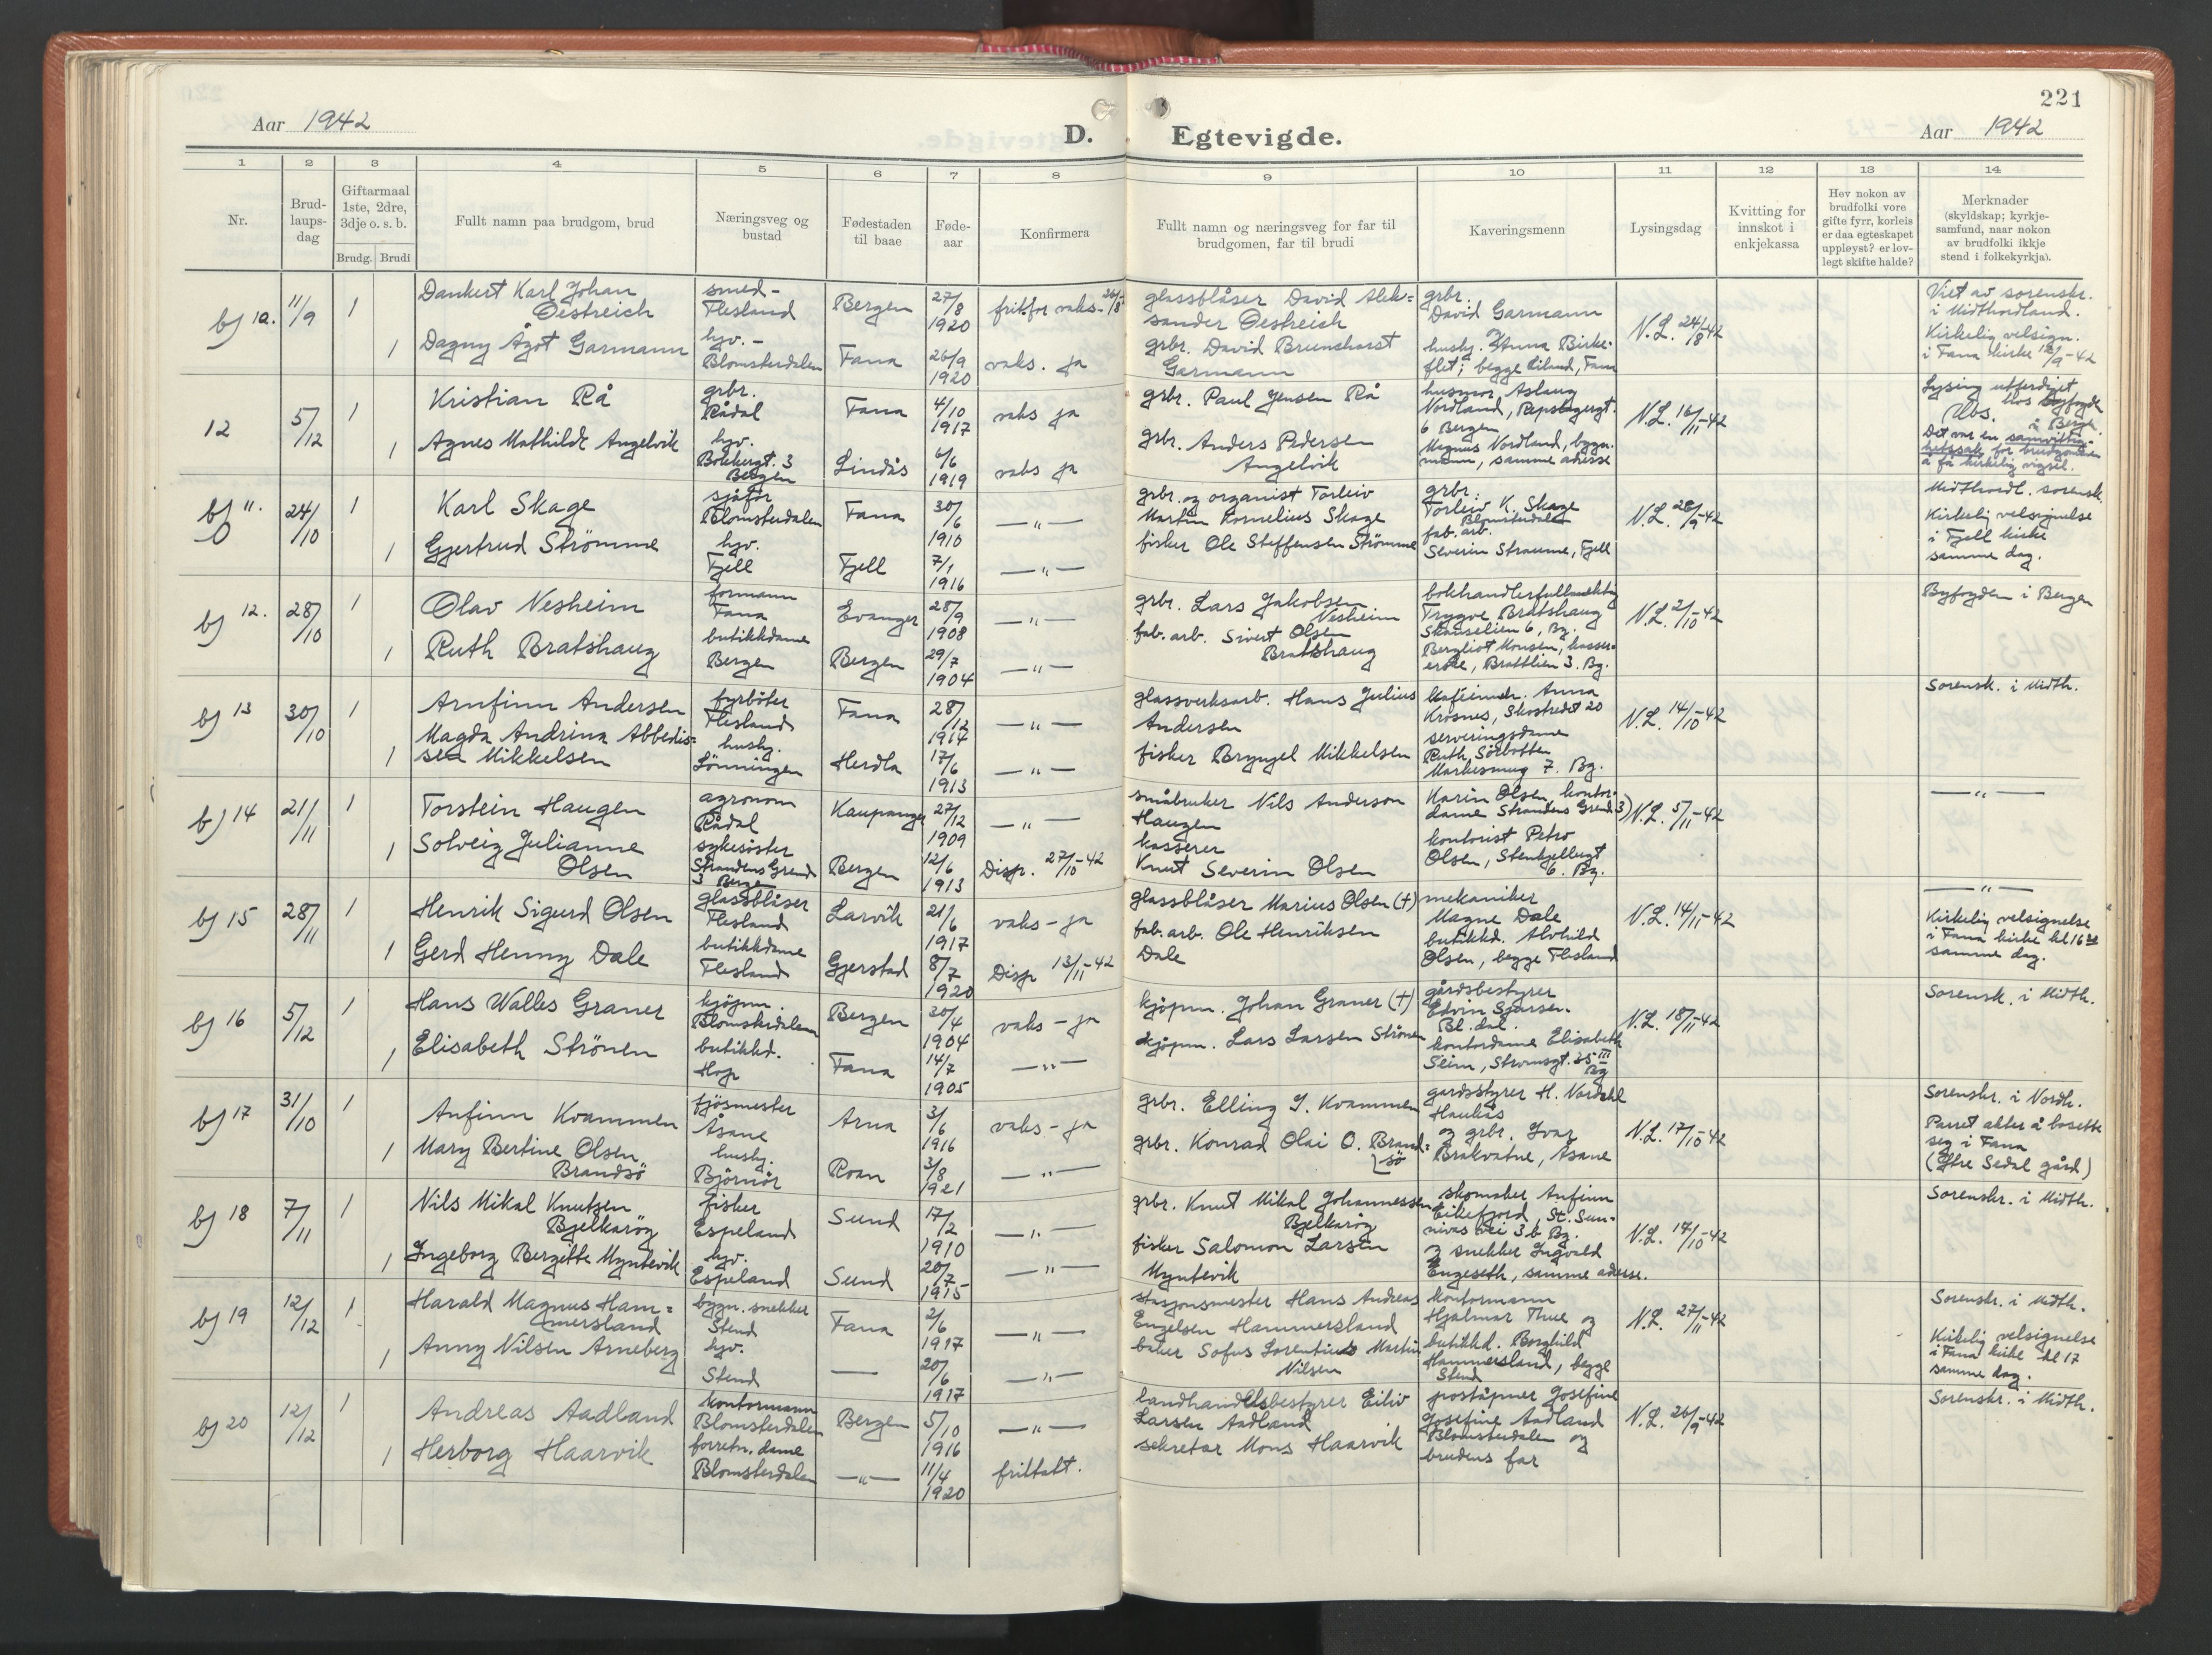 221
Aar 1942
D. Egtevigde.
Aar 1942
1 2 3 4 5 6 7 8 9 10 11 12 13 14
Nr.
Brud-
laups-
dag
Giftarmaal
1ste, 2dre,
3dje o. s. b.
Brudg. Brudi
Fullt namn paa brudgom, brud
Næringsveg og
bustad
Fødestaden
til baae
Føde-
aar
Konfirmera
Fullt namn og næringsveg for far til
brudgomen, far til brudi
Kaveringsmenn
Lysingsdag
Kvitting for
innskot i
enkjekassa
Hev nokon av
brudfolki vore
gifte fyrr, korleis
er daa egteskapet
uppløyst? er lov-
legt skifte halde?
Merknader
(skyldskap; kyrkje-
samfund, naar nokon
av brudfolki ikkje
stend i folkekyrkja).
bj 10. 11/9 1
Dankert Karl Johan
Oestreich
smed-
Flesland
Bergen
27/8
1920
1 Dagny Ågot Garmann
hjv. -
Blomsterdalen
Fana
26/9
1920
vaks. ja
glassblåser David Alek=
sander Oestreich
grbr. David Brunchorst
Garmann
grbr.
David Garmann
og
husbj. Anna Birke-
flet; begge Liland, Fana
N.L. 24/8-42
Viet av sorenskr.
i Midthordland.
Kirkelig velsign.
i Fana kirke 12/9-42
12 5/12 1
Kristian Rå
grbr.
Rådal
Fana
4/10
1917
vaks ja
1 Agnes Mathilde Angelvik
hjv.
Bøkkergt. 3
Bergen
Lindås
6/6
1919
vaks ja
grbr. Paul Jensen Rå
grbr. Anders Pedersen
Angelvik
husmor Aslaug
Nordland, Repslagergt.
6 Bergen
Magnus Nordland, bygn.
mann, samme adresse
N.L. 16/11-42
Lysing utferdiget
hos Byfogde
i Bergen.
Obs.
Det var en samvittig-
hetssak for brudgommen
å få kirkelig vigsel.
bj 11. 24/10 1
Karl Skage
sjåfør
Blomsterdalen
Fana
30/6
1910
— " —
1 Gjertrud Strömme
hjv.
Fjell
Fjell
7/1
1916
— " —
grbr. og organist Torleiv
Martin Kornelius Skage
fisker Ole Steffensen Strömme
grbr.:
Torleiv K. Skage
Blomsterdalen
fab. arb.
Severin Straume, Fjell
N.L. 28/9-42
Midthordl. sorensk.
Kirkelig velsignelse
i Fjell kirke
samme dag.
bj 12. 28/10 1
Olav Nesheim
formann
Fana
Evanger
28/9
1908
— " —
1 Ruth Bratshaug
butikkdame
Bergen
Bergen
29/7
1904
— " —
grbr. Lars Jakobsen
Nesheim
fab. arb. Sivert Olsen
Bratshaug
bokhandlerfullmektig
Trygve Bratshaug
Skanselien 6, Bg.
Bergliot Monsen, kasser-
erske, Brattlien 3. Bg.
N.L. 2/10-42
Byfogden i Bergen
bj 13 30/10 1
Arnfinn Andersen
fyrböter
Flesland
Fana
28/12
1917
— " —
1 Magda Andrina Abbedis=
sea Mikkelsen
husbj.
Lönningen
Herdla
17/6
1913
— " —
glassverksarb. Hans Julius
Andersen
fisker Bryngel Mikkelsen
kaféinneh. Anna
Krosnes, Skostredet 20
serveringsdame
Ruth Sörbotten
Markesmug 7. Bg.
N.L. 14/10-42
Sorensk. i Midth.
bj 14 21/11 1
Torstein Haugen
agronom
Rådal
Kaupanger
27/12
1909
— " —
1 Solveig Julianne
Olsen
sykesöster
Strandens Grend
3 Bergen
Bergen
12/6
1913
Disp. 27/10-42
småbruker Nils Anderson
Haugen
kasserer
Knut Severin Olsen
Karin Olsen, kontor-
dame Strandens Grend 3)
kontorist Petro
Olsen, Stenkjellergt
6. Bg.
N.L. 5/11-42
— " —
bj 15 28/11 1
Henrik Sigurd Olsen
glassblåser
Flesland
Larvik
21/6
1917
vaks - ja
1 Gerd Henny Dale
butikkdame
Flesland
Gjerstad
8/7
1920
Disp 13/11-42
glassblåser Marius Olsen (+)
fab. arb. Ole Henriksen
Dale
mekaniker
Magne Dale
butikkd. Alvhild
Olsen, begge Flesland
N.L. 14/11-42
— " —
Kirkelig velsignelse
i Fana kirke kl 16
samme dag.
bj 16 5/12 1
Hans Walles Graner
kjöpm.
Blomsterdalen
Bergen
30/4
1904
vaks - ja
1 Elisabeth Strönen
butikkd.
Hop
Fana
14/7
1905
— " —
kjöpm. Johan Graner (+)
kjöpm. Lars Larsen Strönen
gårdsbestyrer
Edvin Sjursen.
Bl. dal.
kontordame Elisabeth
Seim, Strömsgt. 35 III
Bg
N.L. 18/11-42
Sorensk. i Midth.
bj 17 31/10 1
Anfinn Kvammen
fjösmester
Åsane
Arna
3/6
1916
vaks - ja
1 Mary Bertine Olsen
Brandsö
husbj.
Björnör
Roan
3/8
1921
— " —
grbr. Elling J. Kvammen
grbr. Konrad Olai O. Brand=
sö
gardsstyrer H. Nordahl
Haukås
og grbr. Ivar
Brakvatne, Åsane
N.L. 17/10-42
Sorenskr. i Nordh.
Parret akter å bosette
seg i Fana
(Ytre Sedal gård)
bj 18 7/11 1
Nils Mikal Knutsen
Bjelkaröy
fisker
Espeland
Sund
17/2
1910
— " —
1 Ingeborg Bergitte Myntevik
hjv.
Espeland
Sund
20/7-
1915
— " —
grbr. Knut Mikal Johannessen
Bjelkaröy
fisker Salomon Larsen
Myntevik
skomaker Anfinn
Eikefjord, St. Sun-
nivas vei 3b Bg.
og snekker Ingvald
Engeseth, samme adresse.
N.L. 14/10-42
Sorenskr. i Midth.
bj 19 12/12 1
Harald Magnus Ham=
mersland
bygn. snekker
Stend
Fana
2/6
1917
— " —
1 Anny Nilsen Arneberg
hjv.
Stend
—
20/6
1917
— " —
stasjonsmester Hans Andreas
Engelsen Hammersland
baker Sofus Lorentius Martin
Nilsen
kontormann
Hjalmar Thue og
butikkd. Borghild
Hammersland, begge
Stend
N.L. 27/11-42
Sorenskr. i Midth.
Kirkelig velsignelse
i Fana kirke kl 17
samme dag.
bj 20 12/12 1
Andreas Aadland
kontormann
Blomsterdalen
Bergen
5/10
1916
— " —
1 Herborg Haarvik
forretn. dame
Blomsterdalen
— " —
11/4
1920
frittatt.
landhandelsbestyrer Eiliv
Larsen Aadland
sekretær Mons Haarvik
poståpner Josefine
Josefine Aadland
Blomsterdalen og
brudens far
N.L. 26/9-42
Sorenskr. i Midth.